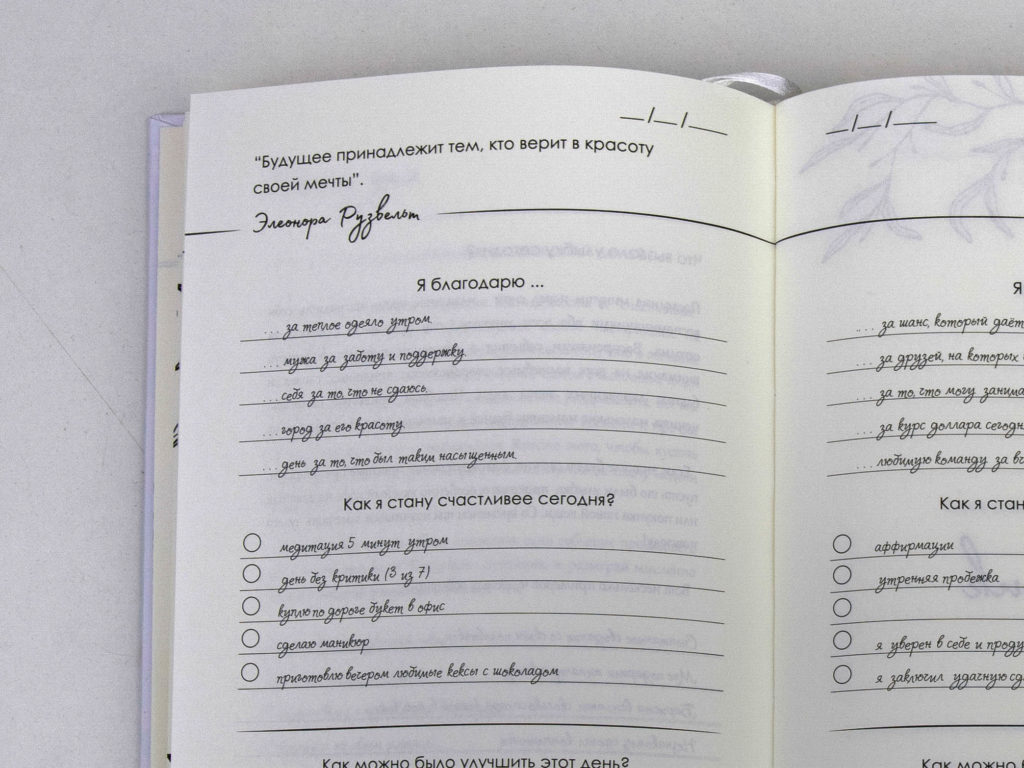 __/__/____
“Будущее принадлежит тем, кто верит в красоту
своей мечты”.
Элеонора Рузвельт
Я благодарю ...
... за теплое одеяло утром.
... мужа за заботу и поддержку.
... себя за то, что не сдаюсь.
... город за его красоту.
... день за то, что был таким насыщенным.
Как я стану счастливее сегодня?
медитация 5 минут утром
день без критики (3 из 7)
куплю по дороге букет в офис
сделаю маникюр
приготовлю вечером любимые кексы с шоколадом
Как можно было улучшить этот день?
__/__/____
Я
... за шанс, который даёт
... за друзей, на которых
... за то, что могу
... за курс доллара
... любимую команду за
Как я
аффирмации
утренняя пробежка
я уверен в себе и
я заключил удачную
Как можно